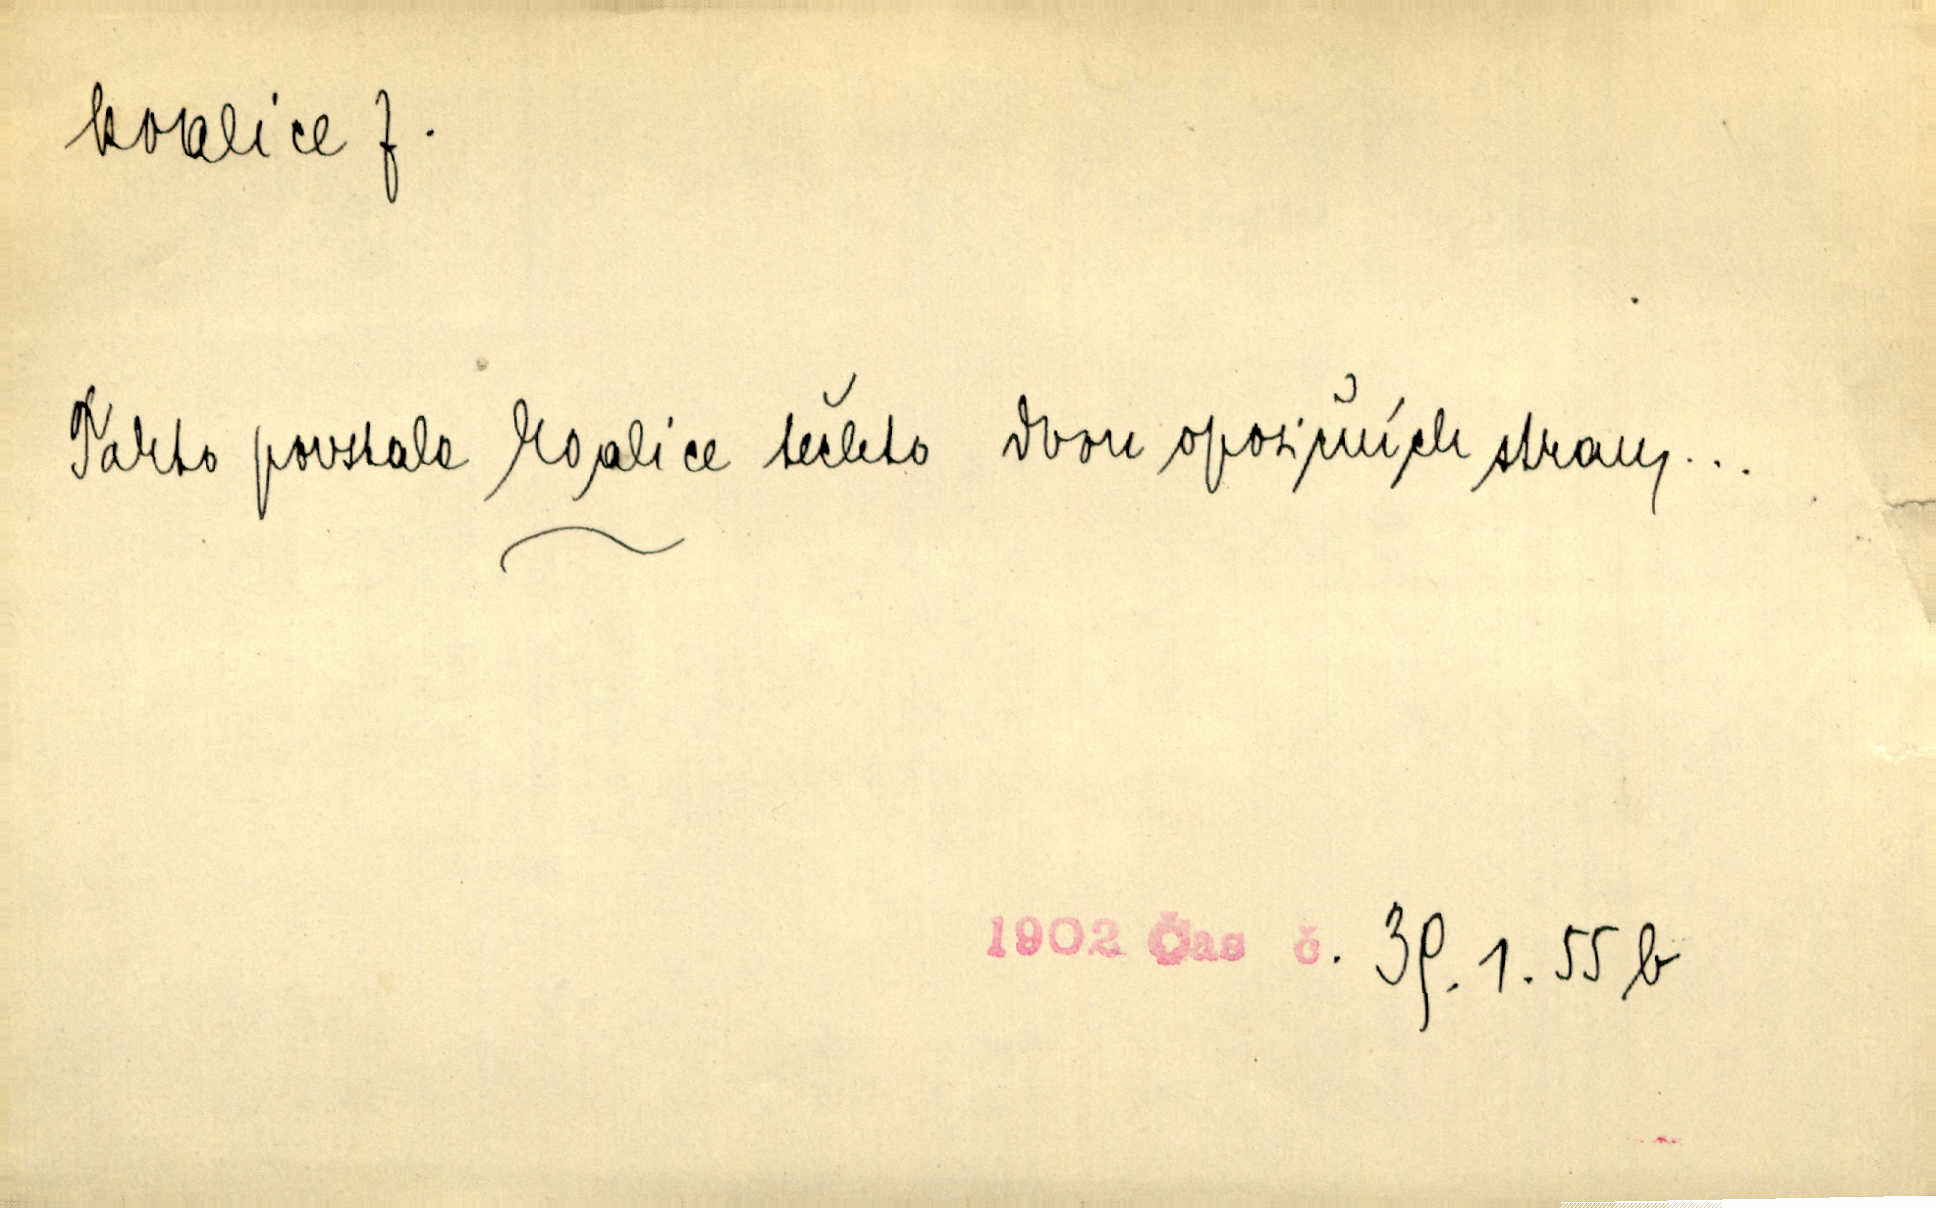 koalice f.
Takto povstala koalice těchto dvou oposičních stran, ...
1902 Čas č. 39. 1. 55 b